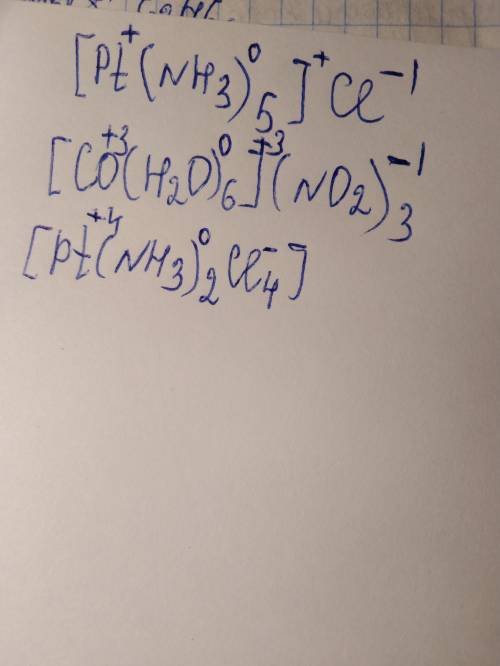 [Pt⁺(NH₃)⁰₅]⁺Cl⁻¹
[CO⁺³(H₂O)⁰₆]⁺³(NO₂)₃⁻¹
[Pt⁺⁴(NH₃)⁰₂Cl⁻₄]